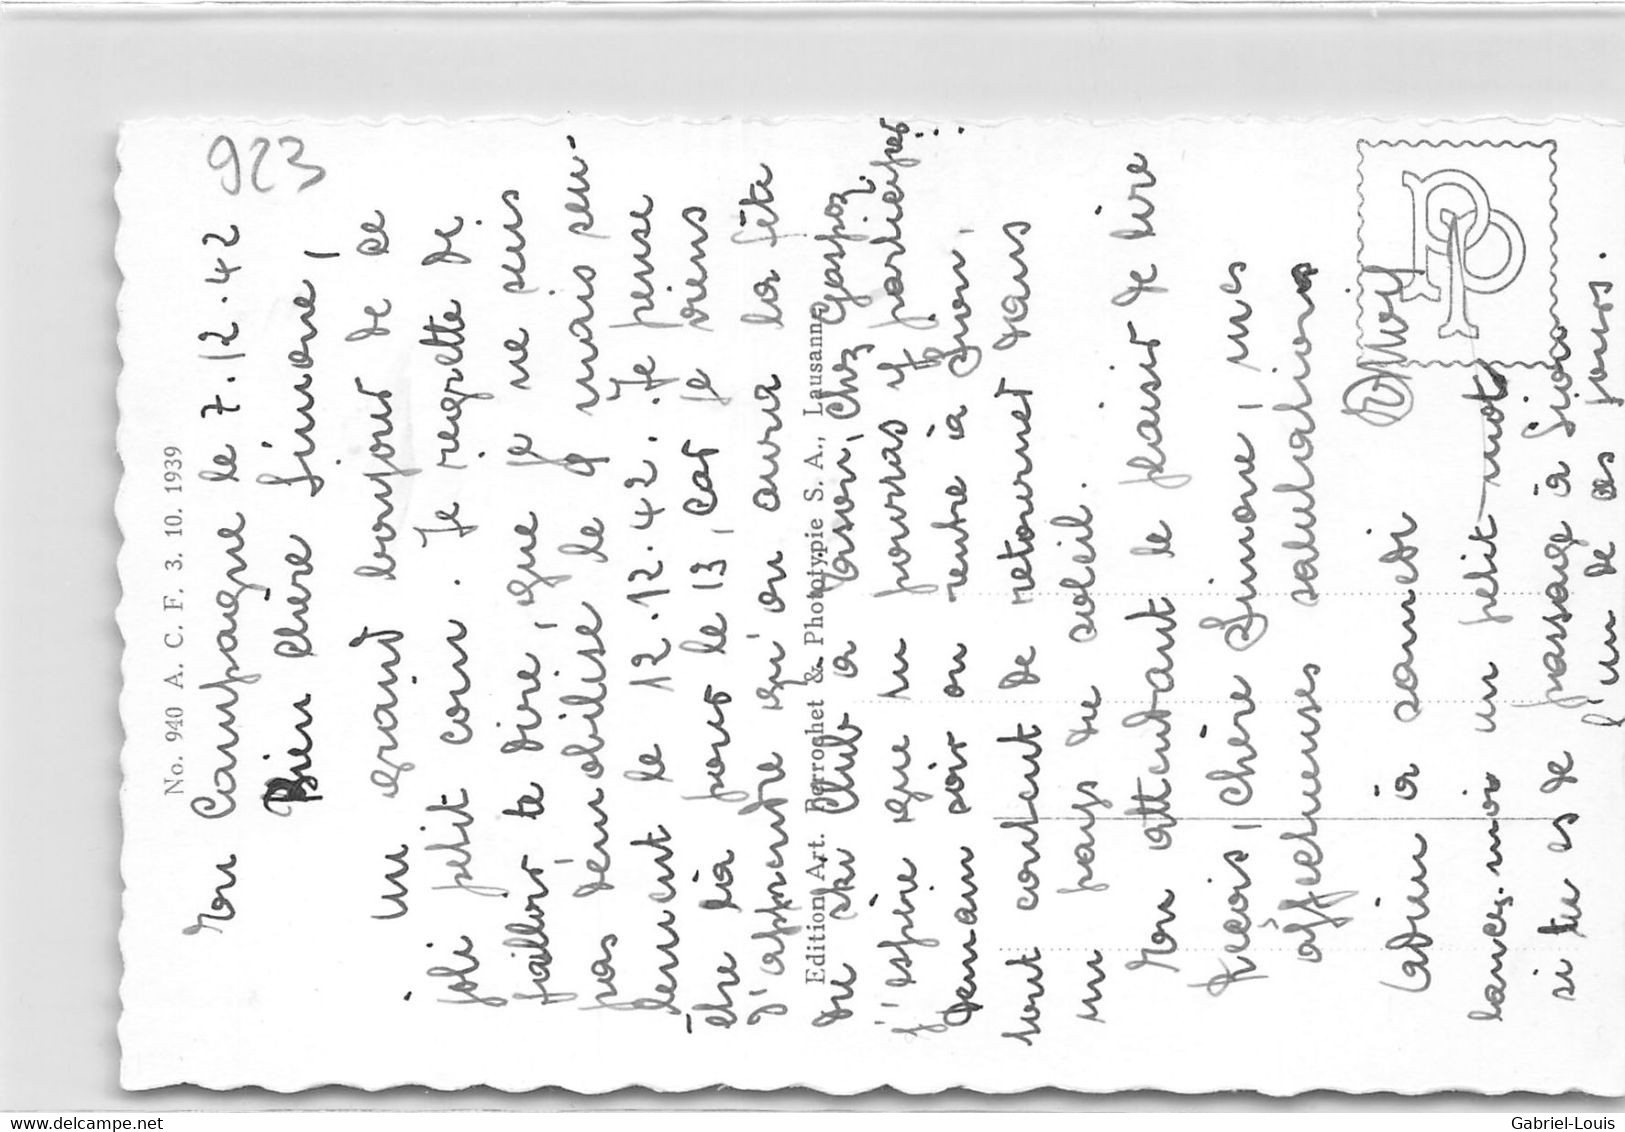 No. 940 A. C. F. 3. 10. 1939
923
En Campagne le 7.12.42
Bien chère Simone,
Un grand bonjour de ce
joli petit coin. Je regrette de
failloir te dire, que je ne suis
pas démobilisé le 9 mais seu-
lement le 12.12.42. Je pense
être là pour le 13, car je viens
d'apprendre qu'on aura la fête
du ski Club à chez Gaspoz.
Edition Art. Perrochet & Phototypie S. A., Lausanne
j'espère que tu pourras y participer...
Demain soir on rentre à Sion,
tout content de retourner dans
un pays du soleil.
En attendant le plaisir de lire
Reçois, chère Simone, mes
affectueuses salutations
PP
Adieu à samedi
lances-moi un petit mot
si tu es de passage à Sion
l'un de ces jours.
Gabriel-Louis